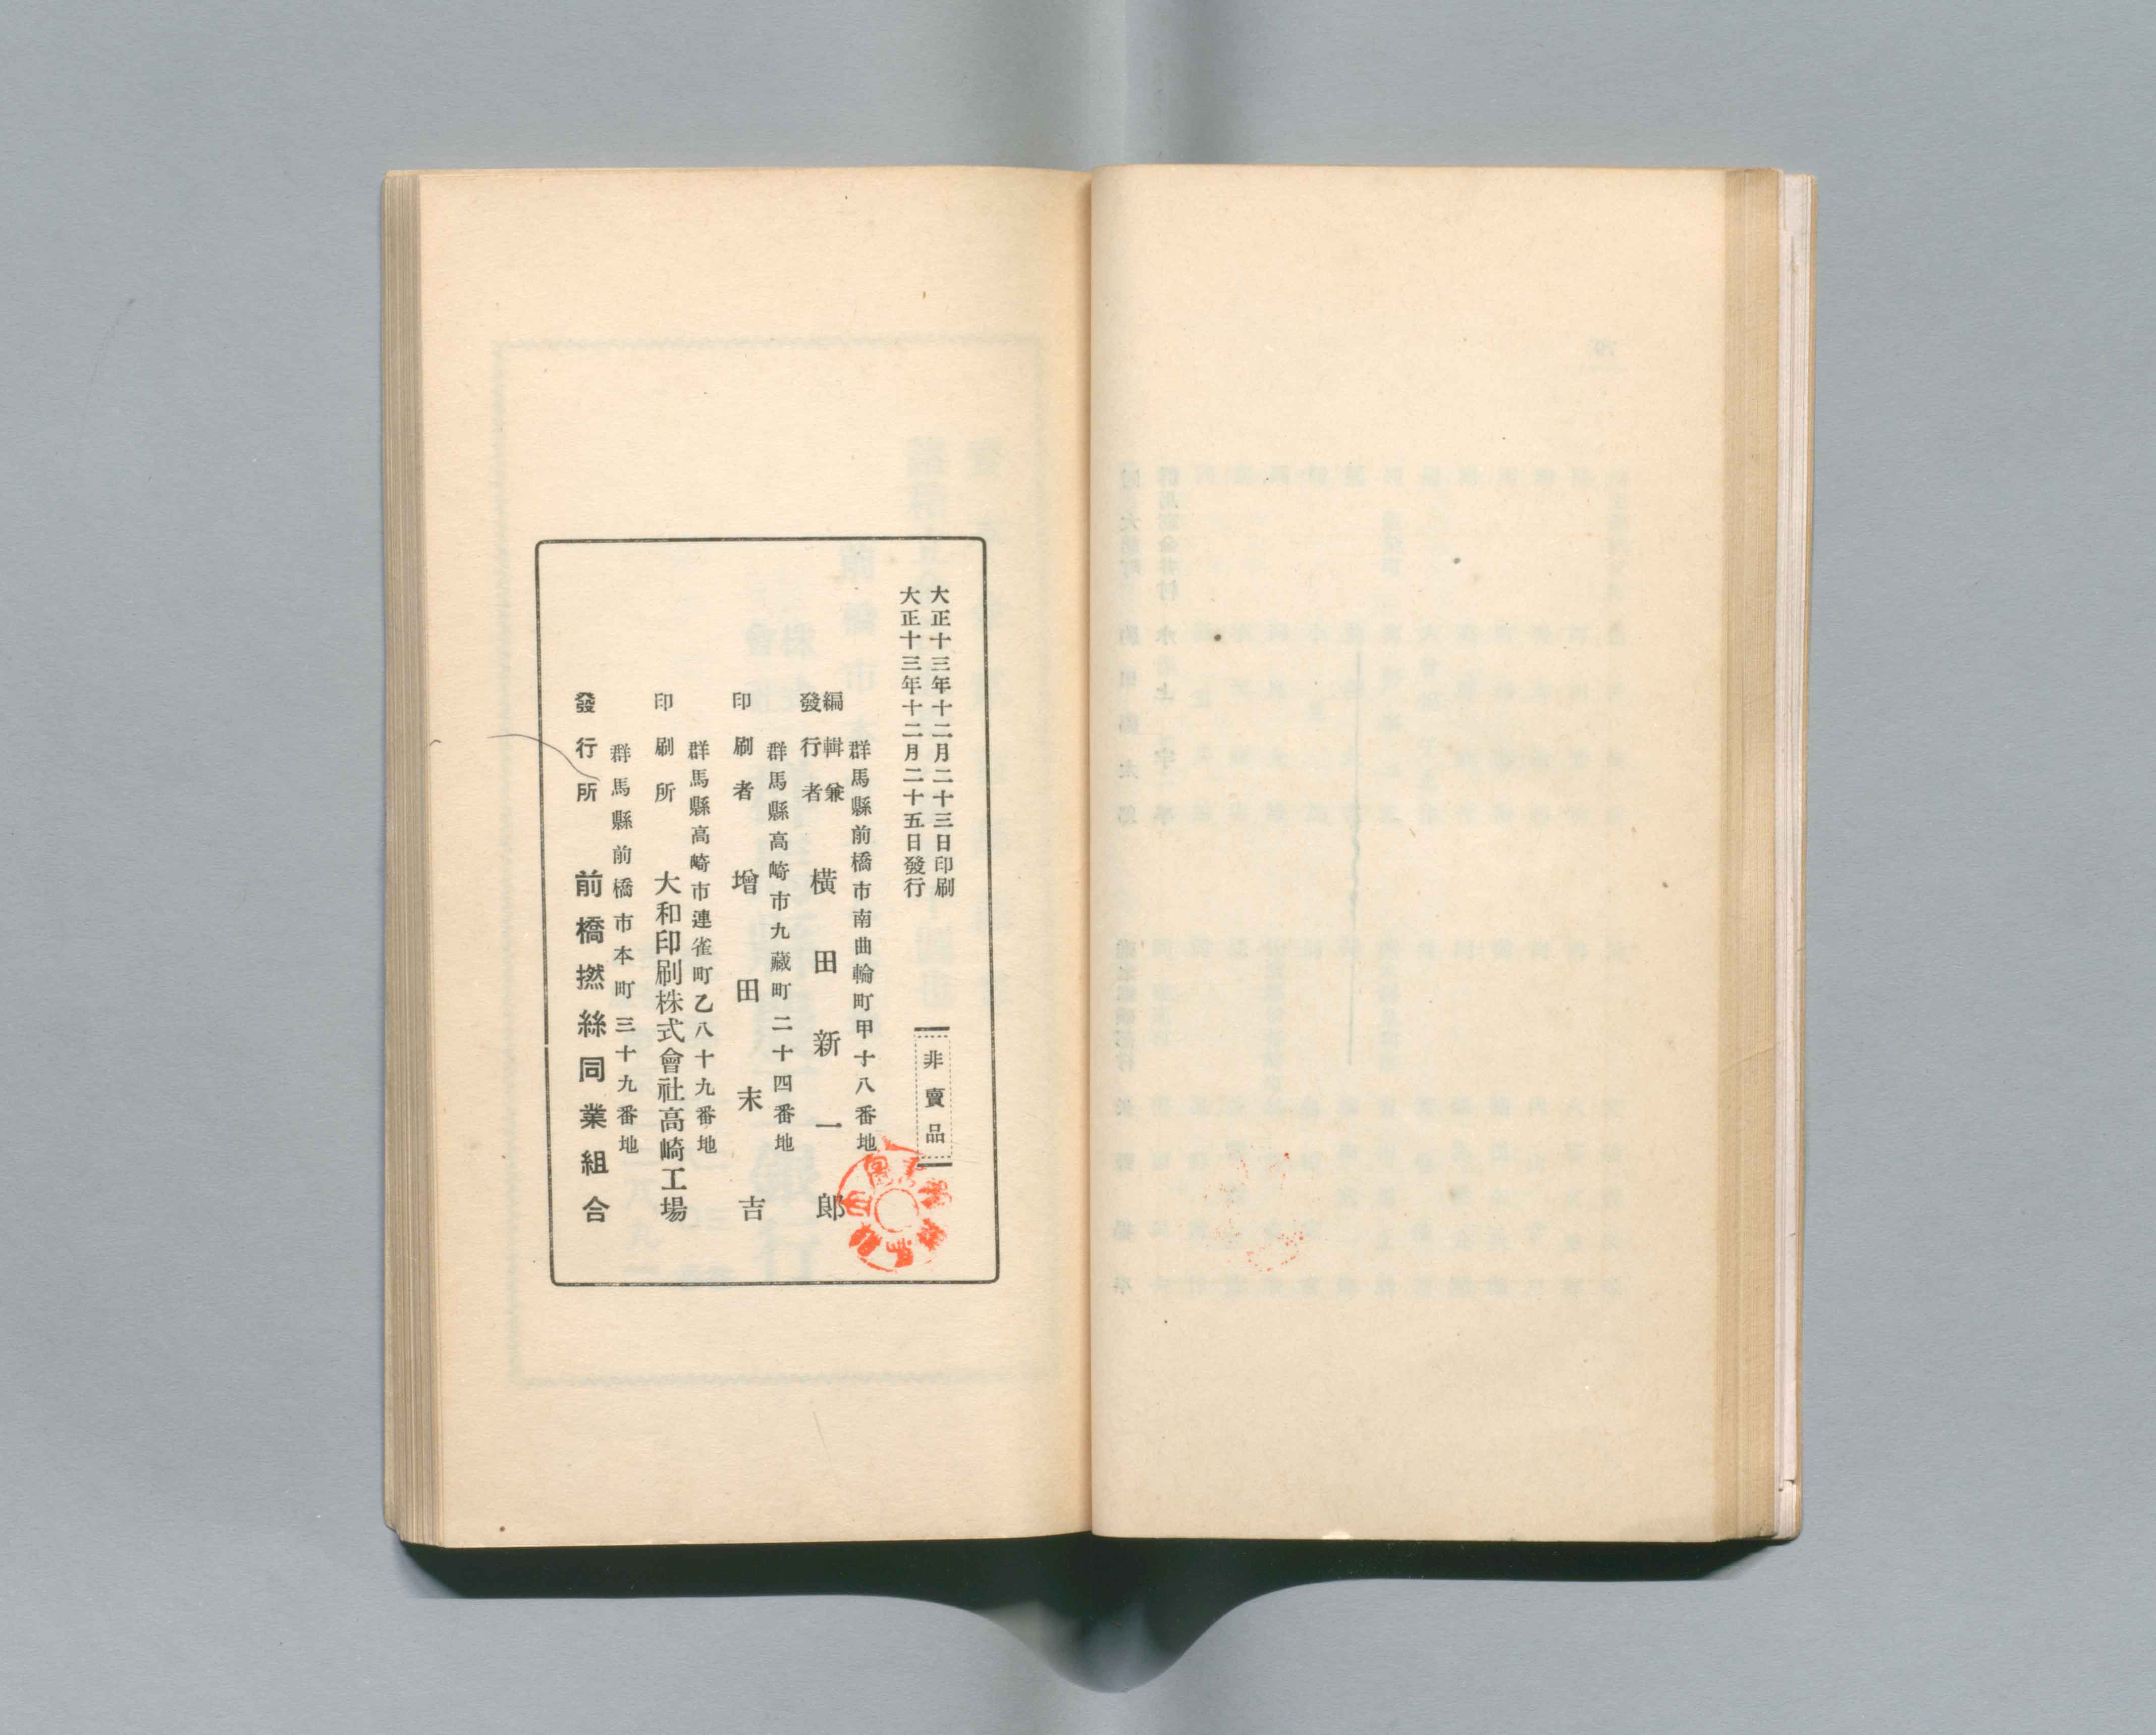 大正十三年十二月二十三日印刷
大正十三年十二月二十五日發行
非賣品
群馬縣前橋市南曲輪町甲十八番地
編輯兼
發行者
橫田新一郎
群馬縣高崎市九藏町二十四番地
印刷者 增田末吉
群馬縣高崎市連雀町乙八十九番地
印刷所 大和印刷株式會社高崎工場
群馬縣前橋市本町三十九番地
發行所 前橋撚絲同業組合